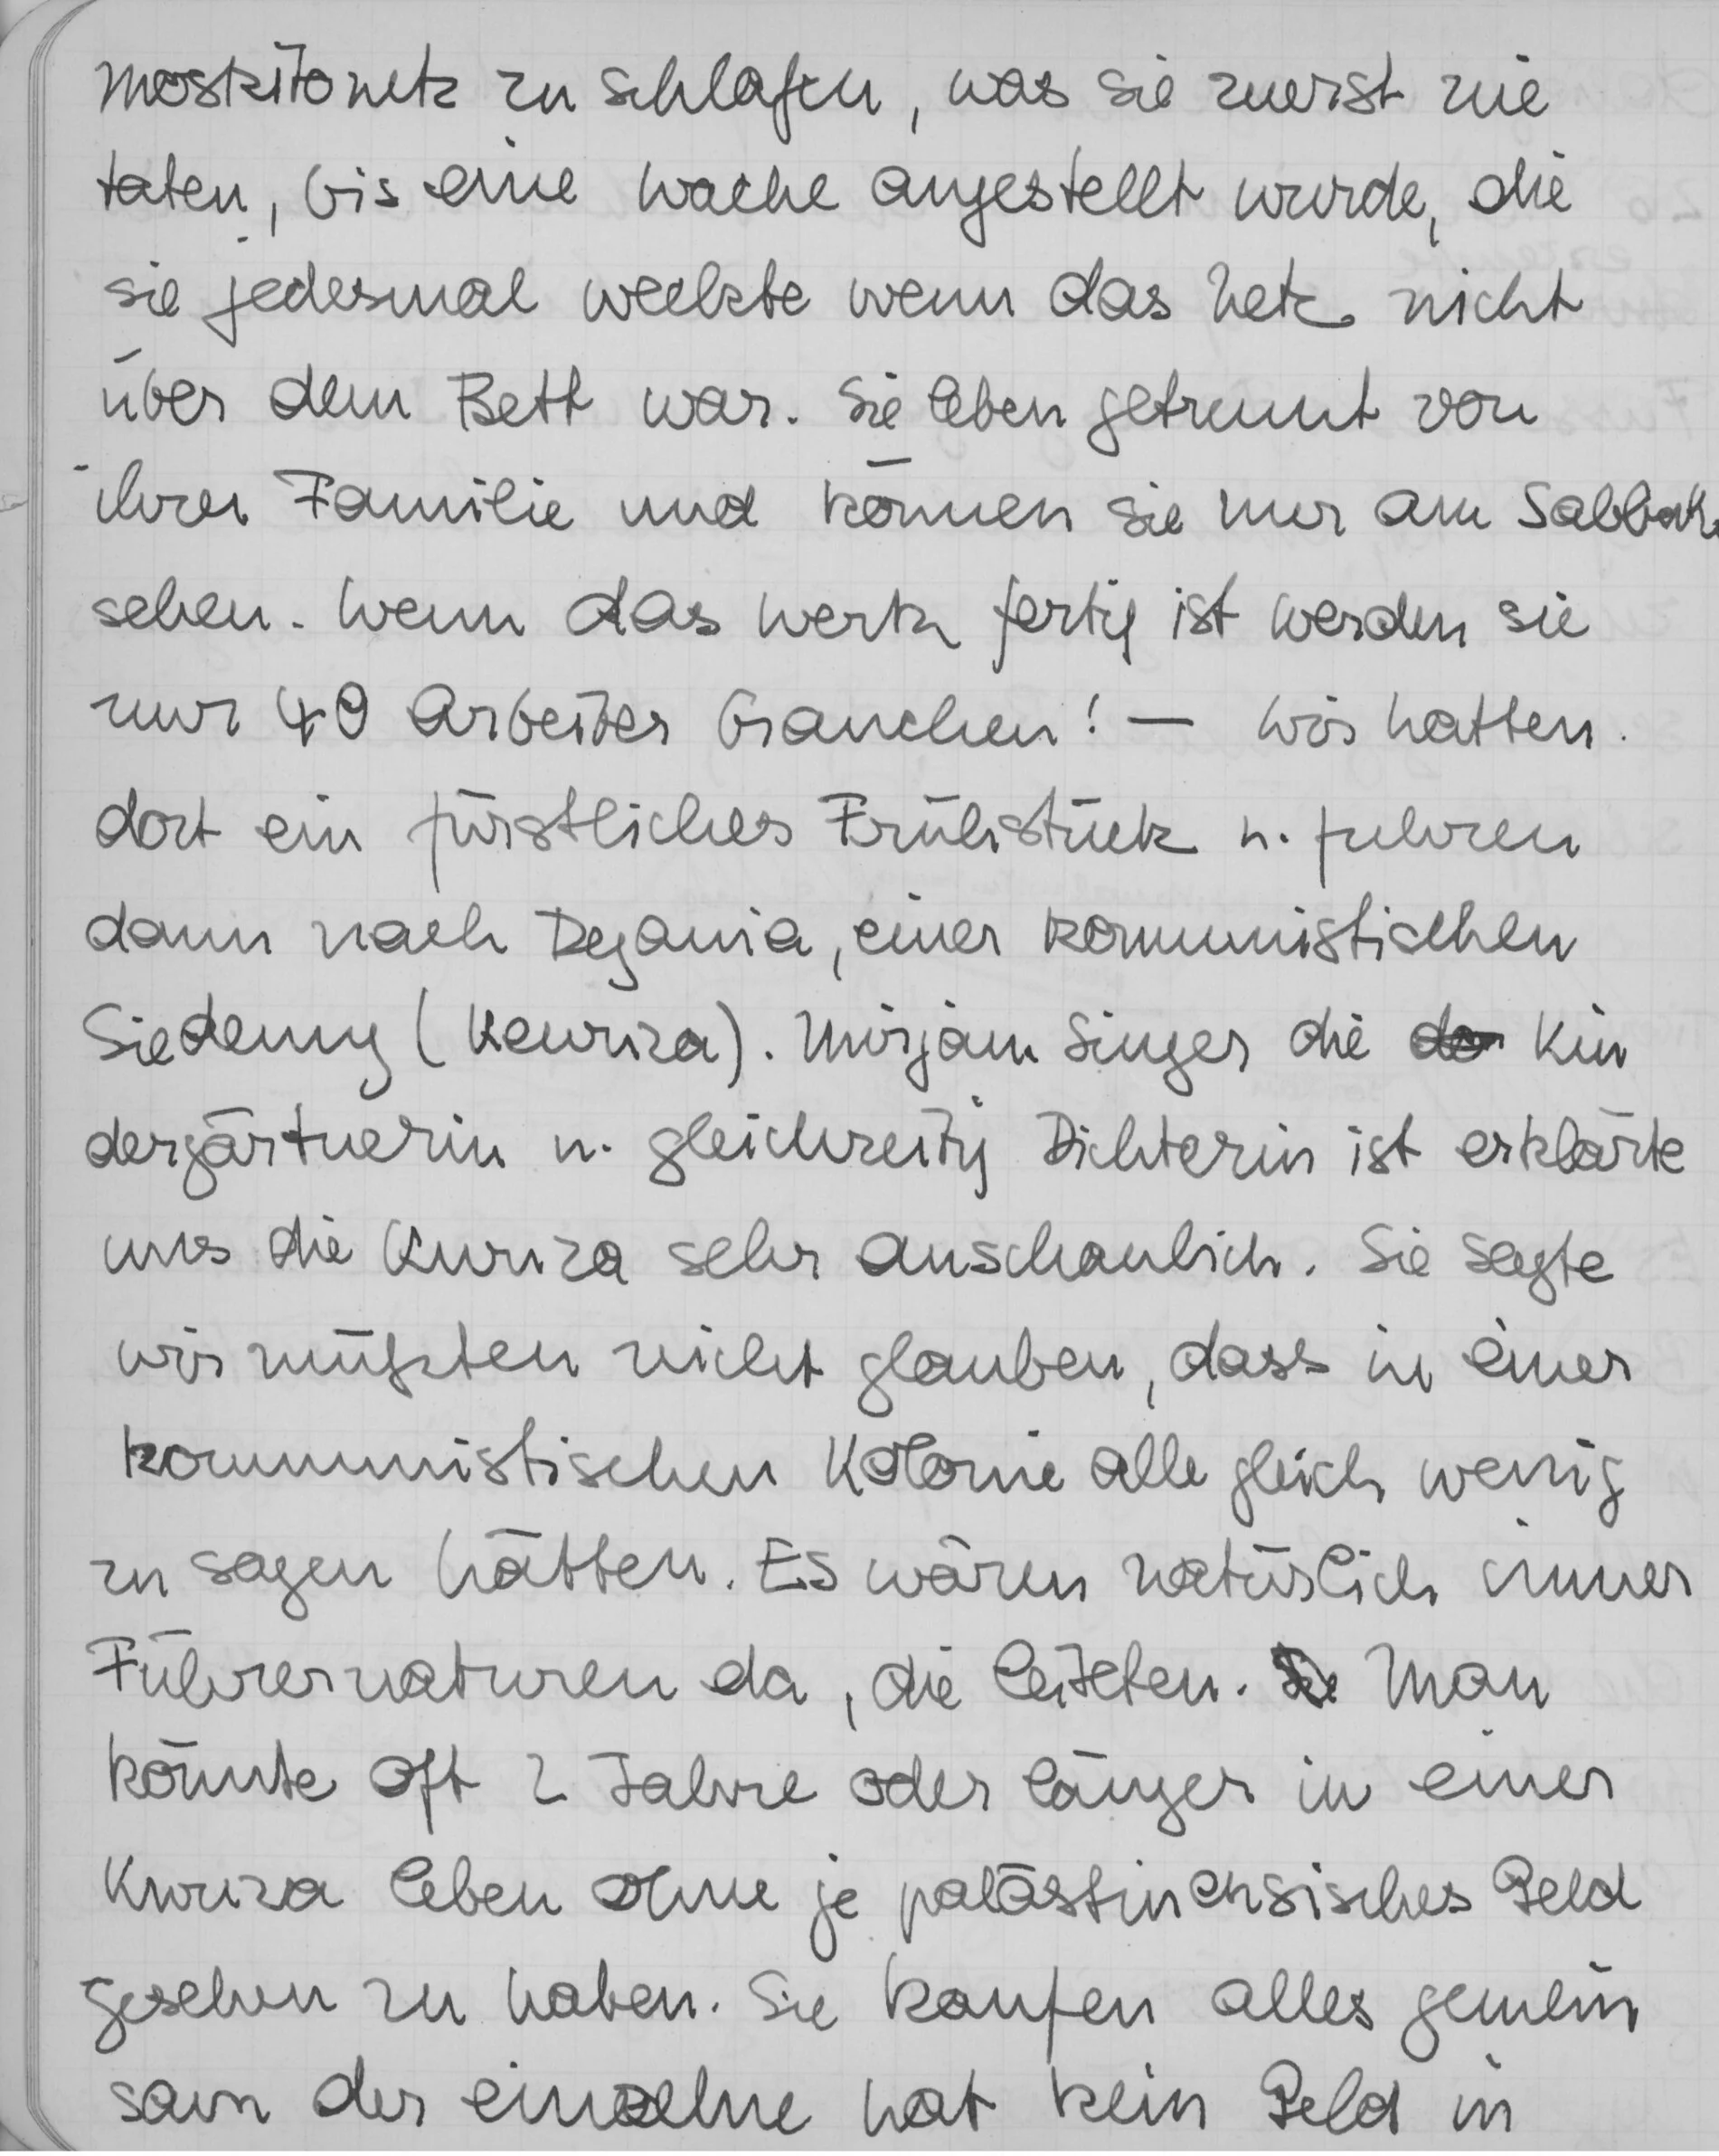 Moskitonetz zu schlafen, was sie zuerst nie
taten, bis eine Wache angestellt wurde, die
sie jedesmal weckte wenn das Netz nicht
über dem Bett war. Sie leben getrennt von
ihrer Familie und können sie nur am Sabbath
sehen. Wenn das Werk fertig ist werden sie
nur 40 Arbeiter brauchen! — Wir hatten
dort ein fürstliches Frühstück u. fuhren
dann nach Degania, einer kommunistischen
Siedenug (Kewuza). Mirjam Singer die Kin
dergärtnerin u. gleichzeitig Dichterin ist erklärte
uns die Kwuza sehr anschaulich. Sie sagte
wir müßten nicht glauben, dass in einer
kommunistischen Kolonie alle gleich wenig
zu sagen hätten. Es wären natürlich immer
Führernaturen da, die leiteten. Man
könnte oft 2 Jahre oder länger in einer
Kwuza leben ohne je palästinensisches Geld
gesehen zu haben. Sie kaufen alles gemein
sam der einzelne hat kein Geld in